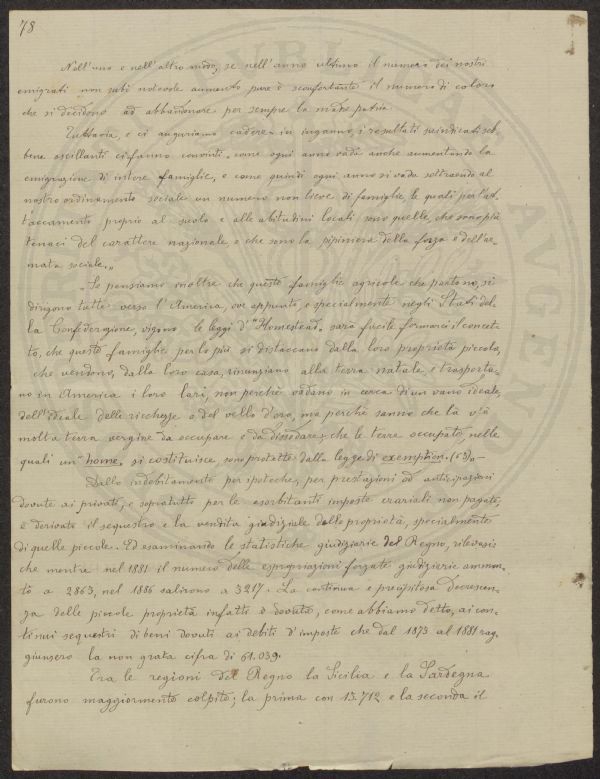 78
Nell'uno e nell'altro modo, se nell'anno ultimo il numero dei nostri
emigrati non subì notevole aumento pure è sconfortante il numero di coloro
che si decidono ad abbandonare per sempre la madre patria.
Tuttavia, e ci auguriamo cadere in inganno, i resultati suindicati seb
bene oscillanti ci fanno convinti, come ogni anno vada anche aumentando la
emigrazione di intere famiglie, e come quindi ogni anno si vada sottraendo al
nostro ordinamento sociale un numero non lieve di famiglie le quali per l'at
taccamento proprio al suolo e alle abitudini locali sono quelle, che sono più
tenaci del carattere nazionale, e che sono la pipiniera della forza e dell'ar
mata sociale."
"Se pensiamo inoltre che queste famiglie agricole che partono, si
dirigono tutte verso l'America, ove appunto, e specialmente negli Stati del
la Confederazione, vigono le leggi d'"Homestead, sarà facile formarci il concet
to, che queste famiglie per lo più si distaccano dalla loro proprietà piccola,
che vendono, dalla loro casa, rinunziano alla terra natale, e trasporta
no in America i loro lari, non perchè vadano in cerca di un vano ideale,
dell'ideale delle ricchezze o del vello d'oro, ma perchè sanno che là v'è
molta terra vergine da occupare e da dissodare, che le terre occupate, nelle
quali un "home" si costituisce sono protette dalla legge di exemption. (63)" —
Dallo indebitamento per ipoteche, per prestazioni od anticipazioni
dovute ai privati, e sopratutto per le esorbitanti imposte erariali non pagate,
è derivato il sequestro e la vendita giudiziale delle proprietà, specialmente
di quelle piccole. Ed esaminando le statistiche giudiziarie del Regno, rilevasi
che mentre nel 1881 il numero delle espropriazioni forzate giudiziarie ammon
tò a 2863, nel 1886 salirono a 3217. La continua e precipitosa decrescen
za delle piccole proprietà infatti è dovuta, come abbiamo detto, ai con
tinui sequestri di beni dovuti ai debiti d'imposte che dal 1873 al 1881 rag
giunsero la non grata cifra di 61.039.
Fra le regioni del Regno la Sicilia e la Sardegna
furono maggiormente colpite; la prima con 13.712 e la seconda il